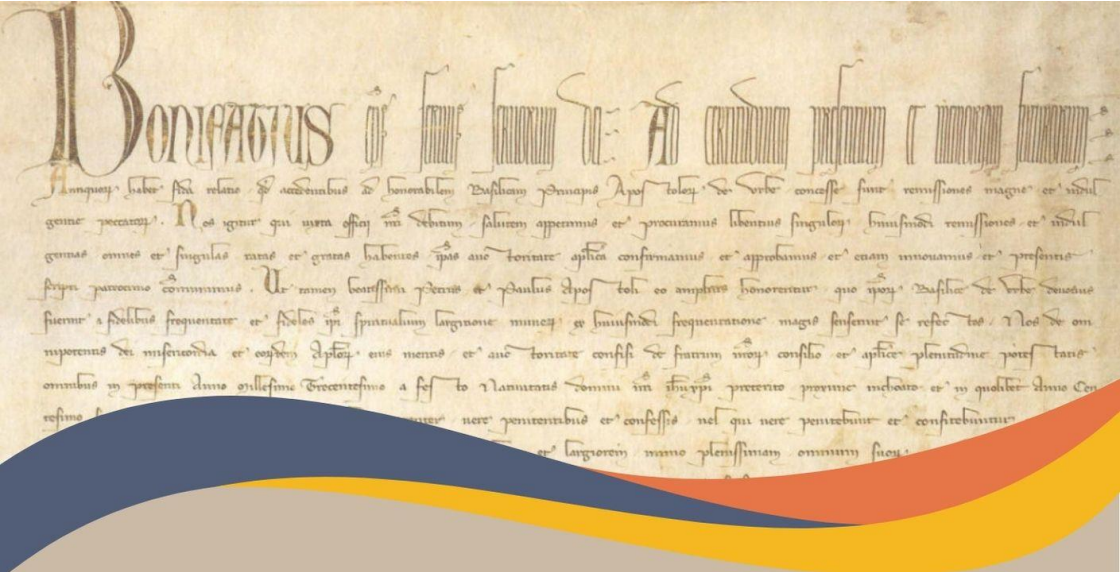 BONIFATIUS eps servus servorum dei Ad certitudinem presentium et memoriam futurorum
Antiquor habet fida relatio qd accedentibus ad honorabilem Basilicam Principis Apostolor de Urbe concesse sunt remissiones magne et indul
gentie peccator. Nos igitur qui iuxta officii nri debitum salutem appetimus et procuramus libentius singulor huiusmodi remissiones et indul
gentias omnes et singulas ratas et gratas habentes ipas auctoritate aplica confirmamus et approbamus et etiam innovamus et presentis
scripti patrocinio comunimus. Ut tamen beatissimi Petrus et Paulus Apostoli eo amplius honorentur quo ipor Basilice de Urbe devotius
fuerint a fidelibus frequentate et fideles ipi spiritualium largitione muner ex huiusmodi frequentatione magis senserint se refectos. Nos de om
nipotentis dei misericordia et eordem Aplor eius meritis et auctoritate confisi de fratrum nror consilio et aplice plenitudine potestatis
omnibus in presenti Anno Millesimo Trecentesimo a festo Nativitatis domini nri ihu xpi preterito proxime inchoato et in quolibet Anno Cen
tesimo vere penitentibus et confessis vel qui vere penitebunt et confitebuntur
et largiorem immo plenissimam omnium suor